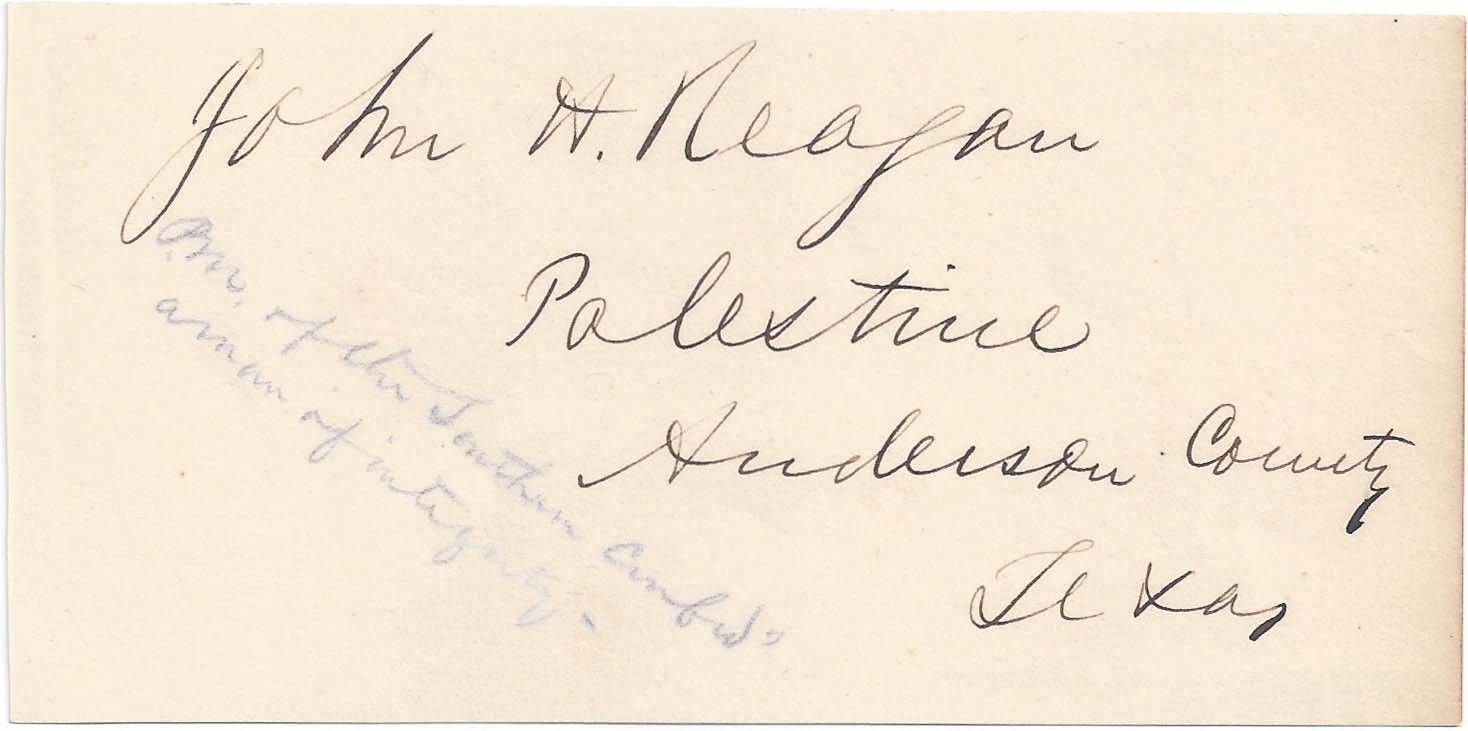 John H. Reagan
Palestine
Anderson County
Texas
P.M. of the Southern Confed.
a man of integrity.